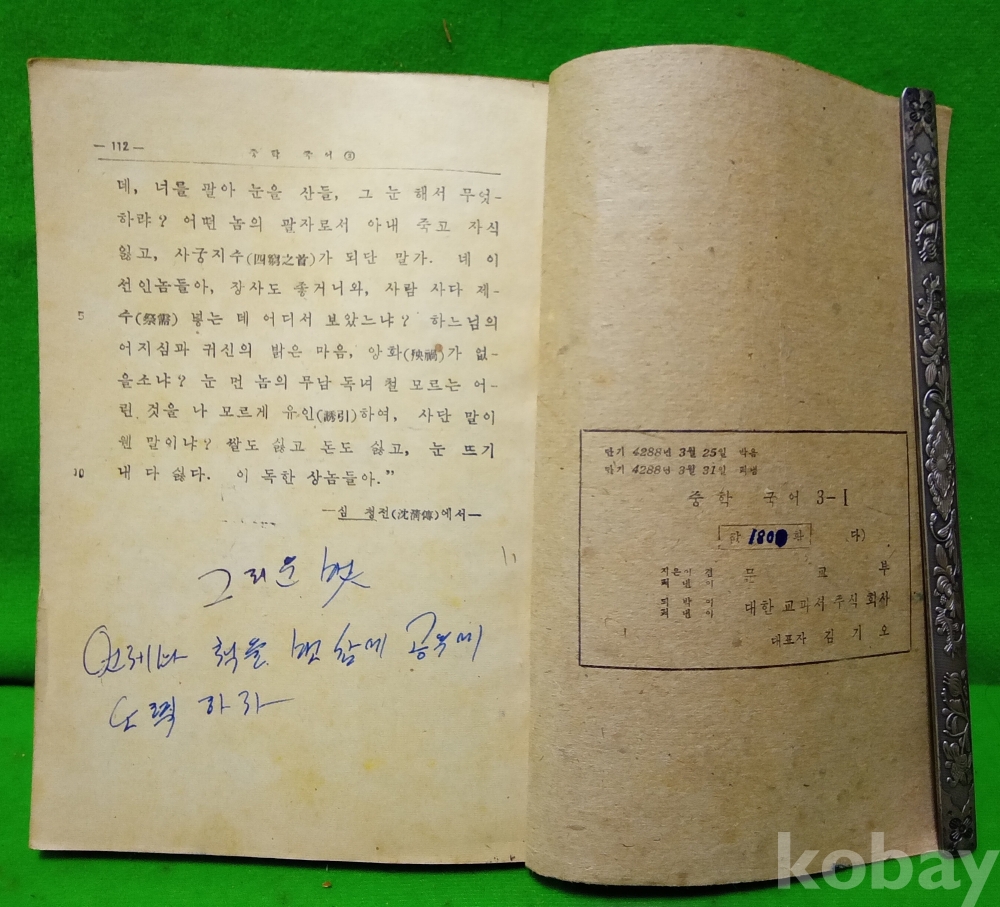 — 112 —
중 학 국 어 ③
데, 너를 팔아 눈을 산들, 그 눈 해서 무엇-
하랴? 어떤 놈의 팔자로서 아내 죽고 자식
잃고, 사궁지수(四窮之首)가 되단 말가. 네 이
선인놈들아, 장사도 좋거니와, 사람 사다 제-
5 수(祭需) 넣는 데 어디서 보았느냐? 하느님의
어지심과 귀신의 밝은 마음, 앙화(殃禍)가 없-
을소냐? 눈 먼 놈의 무남 독녀 철 모르는 어-
린 것을 나 모르게 유인(誘引)하여, 사단 말이
웬 말이냐? 쌀도 싫고 돈도 싫고, 눈 뜨기
10 내 다 싫다. 이 독한 상놈들아.”
—심 청전(沈淸傳)에서—
그리운 벗
언제나 책을 벗 삼에 공부에
노력 하라
단기 4288년 3월 25일 박음
단기 4288년 3월 31일 펴냄
중 학 국 어 3-I
180 환
지은이 겸 문 교 부
펴낸이
대한 교과서 주식 회사
펴낸이
대표자 김 기 오
kobay